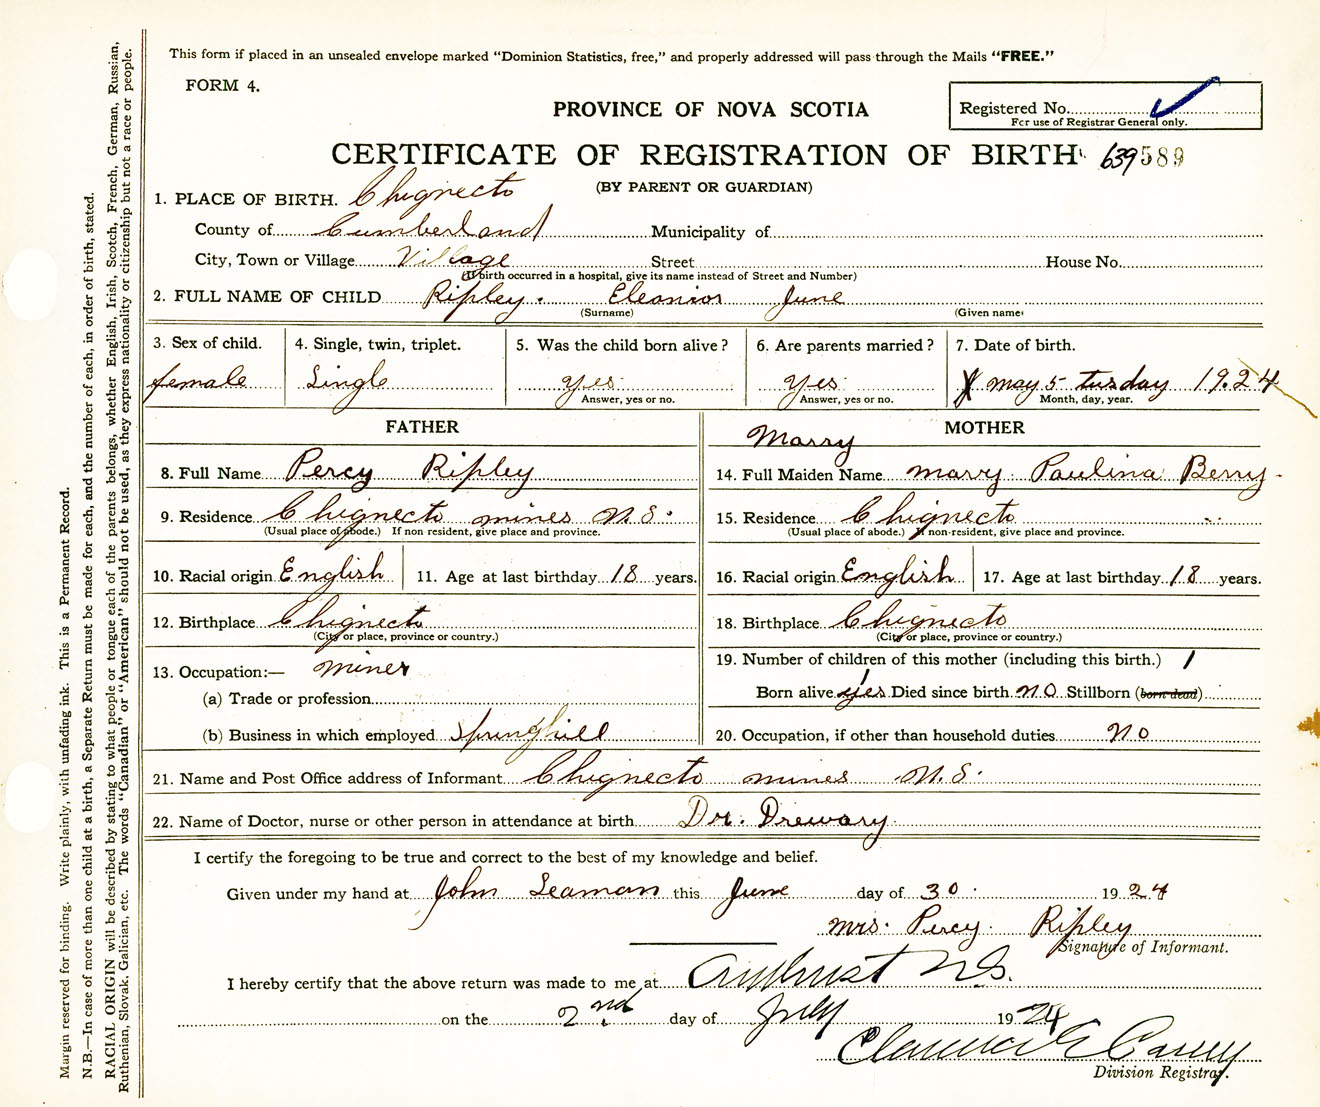 This form if placed in an unsealed envelope marked "Dominion Statistics, free," and properly addressed will pass through the Mails "FREE."
FORM 4.
PROVINCE OF NOVA SCOTIA
Registered No.
For use of Registrar General only.
CERTIFICATE OF REGISTRATION OF BIRTH 639589
(BY PARENT OR GUARDIAN)
1. PLACE OF BIRTH. Chignecto
County of Cumberland Municipality of
City, Town or Village Village Street House No.
(If birth occurred in a hospital, give its name instead of Street and Number)
2. FULL NAME OF CHILD Ripley. Eleanior June
(Surname) (Given name)
3. Sex of child. 4. Single, twin, triplet. 5. Was the child born alive? 6. Are parents married? 7. Date of birth.
female Single yes yes may 5 tusday 1924
Answer, yes or no. Answer, yes or no. Month, day, year.
FATHER MOTHER
Marry
8. Full Name Percy Ripley 14. Full Maiden Name marry Paulina Berry
9. Residence Chignecto mines N.S. 15. Residence Chignecto
(Usual place of abode.) If non-resident, give place and province. (Usual place of abode.) If non-resident, give place and province.
10. Racial origin English 11. Age at last birthday 18 years. 16. Racial origin English 17. Age at last birthday 18 years.
12. Birthplace Chignecto 18. Birthplace Chignecto
(City or place, province or country.) (City or place, province or country.)
13. Occupation:— miner 19. Number of children of this mother (including this birth.) 1
(a) Trade or profession Born alive yes 1 Died since birth no Stillborn (born dead)
(b) Business in which employed Springhill 20. Occupation, if other than household duties no
21. Name and Post Office address of Informant Chignecto mines N.S.
22. Name of Doctor, nurse or other person in attendance at birth Dr. Drewary
I certify the foregoing to be true and correct to the best of my knowledge and belief.
Given under my hand at John Leaman this June day of 30 1924
mrs. Percy Ripley
Signature of Informant.
I hereby certify that the above return was made to me at Amherst N.S.
on the 2nd day of July 1924
Clarence E Casey
Division Registrar.
Margin reserved for binding. Write plainly, with unfading ink. This is a Permanent Record.
N.B.—In case of more than one child at a birth, a Separate Return must be made for each, and the number of each, in order of birth, stated.
RACIAL ORIGIN will be described by stating to what people or tongue each of the parents belongs, whether English, Irish, Scotch, French, German, Russian,
Ruthenian, Slovak, Galician, etc. The words "Canadian" or "American" should not be used, as they express nationality or citizenship but not a race or people.